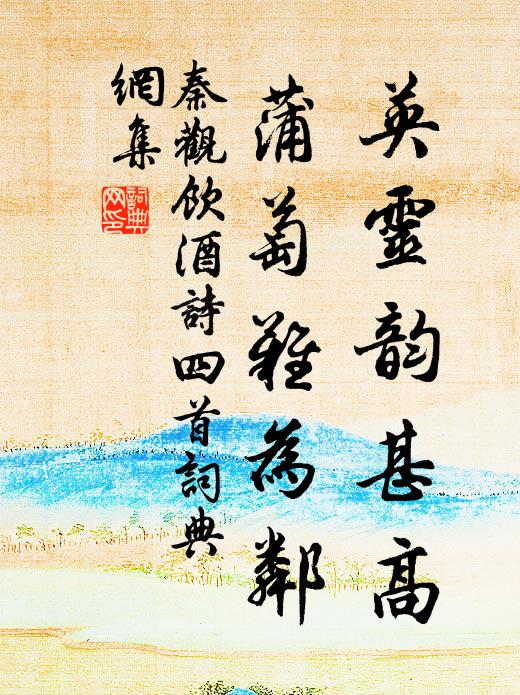 英靈韵甚高
蒲萄難為鄰
秦觀飲酒詩四首詞典
網集
詞典
网印